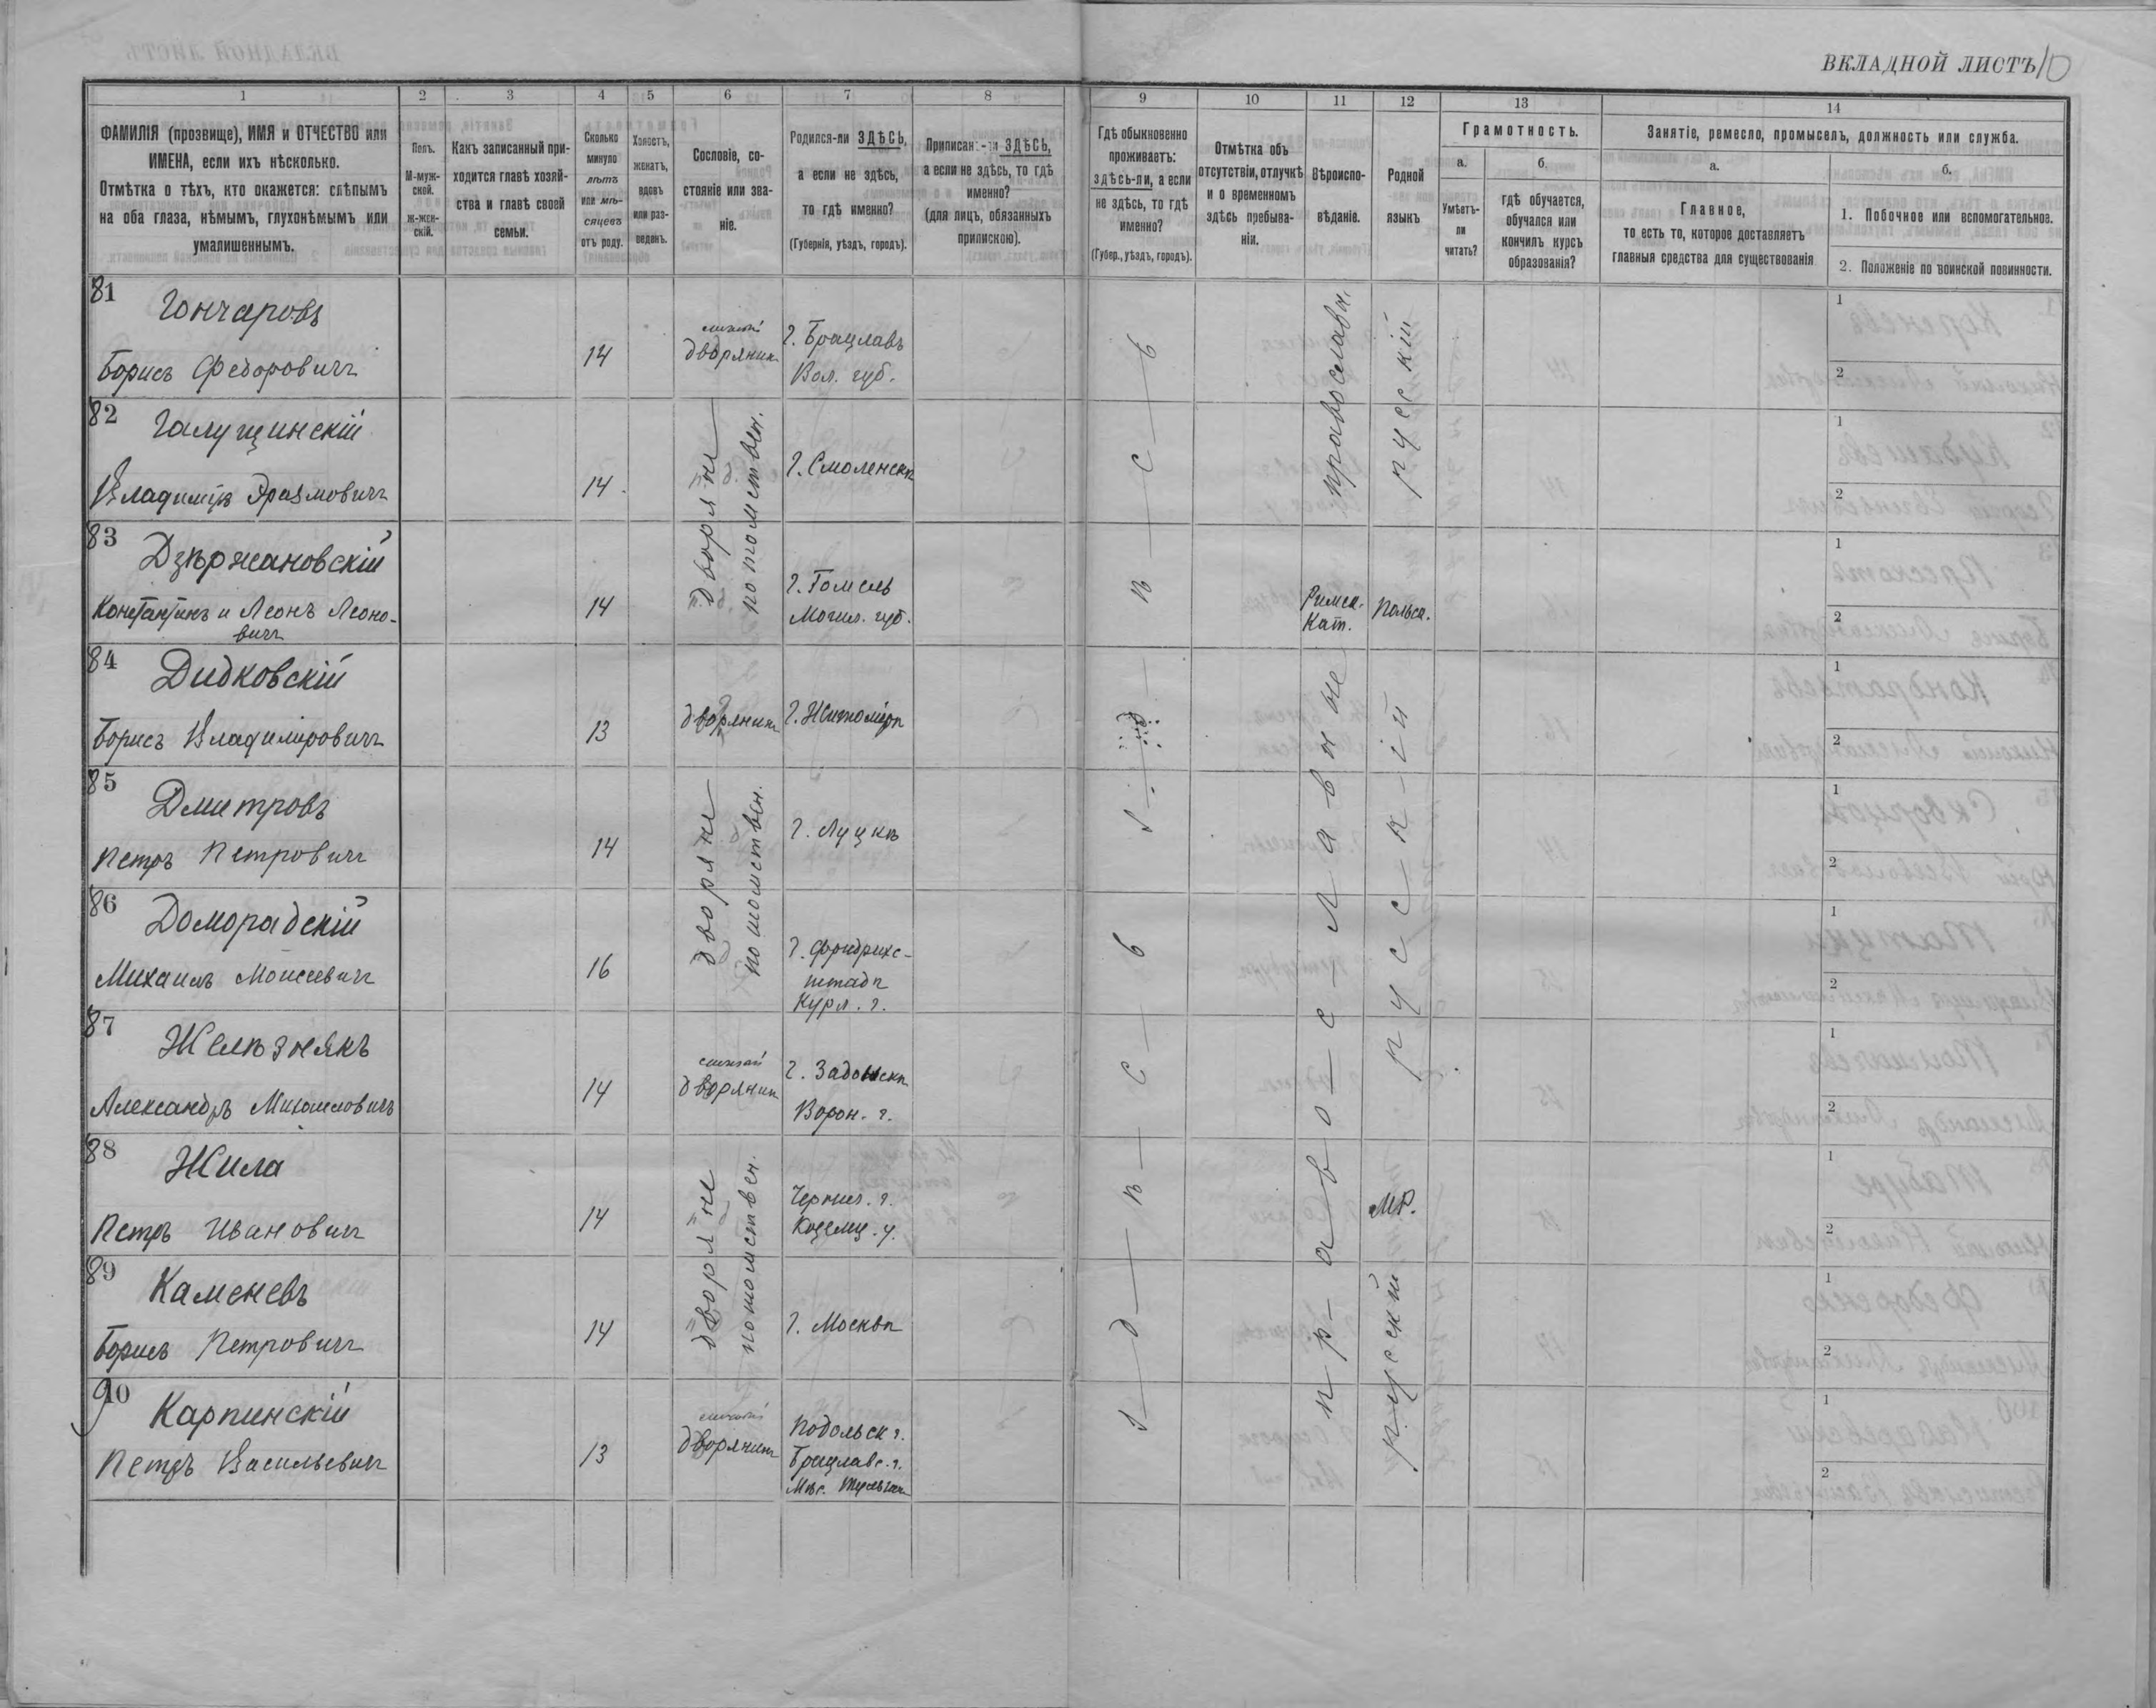 ВКЛАДНОЙ ЛИСТЪ 10
1 2 3 4 5 6 7 8 9 10 11 12 13 14
ФАМИЛІЯ (прозвище), ИМЯ и ОТЧЕСТВО или
ИМЕНА, если ихъ нѣсколько.
Отмѣтка о тѣхъ, кто окажется: слѣпымъ
на оба глаза, нѣмымъ, глухонѣмымъ или
умалишеннымъ.
Полъ.
М-муж-
ской.
ж-жен-
скій.
Какъ записанный при-
ходится главѣ хозяй-
ства и главѣ своей
семьи.
Сколько
минуло
лѣтъ
или мѣ-
сяцевъ
отъ роду.
Холостъ,
женатъ,
вдовъ
или раз-
веденъ.
Сословіе, со-
стояніе или зва-
ніе.
Родился-ли ЗДѢСЬ,
а если не здѣсь,
то гдѣ именно?
(Губернія, уѣздъ, городъ).
Приписанъ-ли ЗДѢСЬ,
а если не здѣсь, то гдѣ
именно?
(для лицъ, обязанныхъ
припискою).
Гдѣ обыкновенно
проживаетъ:
здѣсь-ли, а если
не здѣсь, то гдѣ
именно?
(Губер., уѣздъ, городъ).
Отмѣтка объ
отсутствіи, отлучкѣ
и о временномъ
здѣсь пребыва-
ніи.
Вѣроиспо-
вѣданіе.
Родной
языкъ
Грамотность.
а.
Умѣетъ-
ли
читать?
б.
гдѣ обучается,
обучался или
кончилъ курсъ
образованія?
Занятіе, ремесло, промыселъ, должность или служба.
а.
Главное,
то есть то, которое доставляетъ
главныя средства для существованія
б.
1. Побочное или вспомогательное.
2. Положеніе по воинской повинности.
81 Гончаровъ
Борисъ Федоровичъ 14 дворянин г. Брацлавъ
Вол. губ.
православн. русскій
1
2
82 Галущинскій
Владиміръ Эразмовичъ 14 г. Смоленскъ
дворяне
потомствен.
1
2
83 Дзѣржановскій
Константинъ и Леонъ Леоно-
вичъ
14 г. Гомель
Могил. губ.
Римск.
Кат.
Польск.
1
2
84 Дидковскій
Борисъ Владиміровичъ 13 дворянин г. Житоміръ
здѣсь
православные
русскій
1
2
85 Дмитровъ
Петръ Петровичъ 14 г. Луцкъ
дворяне
потомствен.
1
2
86 Доморадскій
Михаилъ Моисеевичъ 16 г. Фридрихс-
штадт
Курл. г.
1
2
87 Желѣзнякъ
Александръ Михаиловичъ 14 дворянин г. Задонскъ
Ворон. г.
1
2
88 Жила
Петръ Ивановичъ 14 Черниг. г.
Козелец. у.
дворяне
потомствен.
здѣсь
Мр.
1
2
89 Каменевъ
Борисъ Петровичъ 14 г. Москва
русскій
1
2
90 Карпинскій
Петръ Васильевичъ 13 дворянин Подольск г.
Брацлавс. г.
Мѣс.
1
2